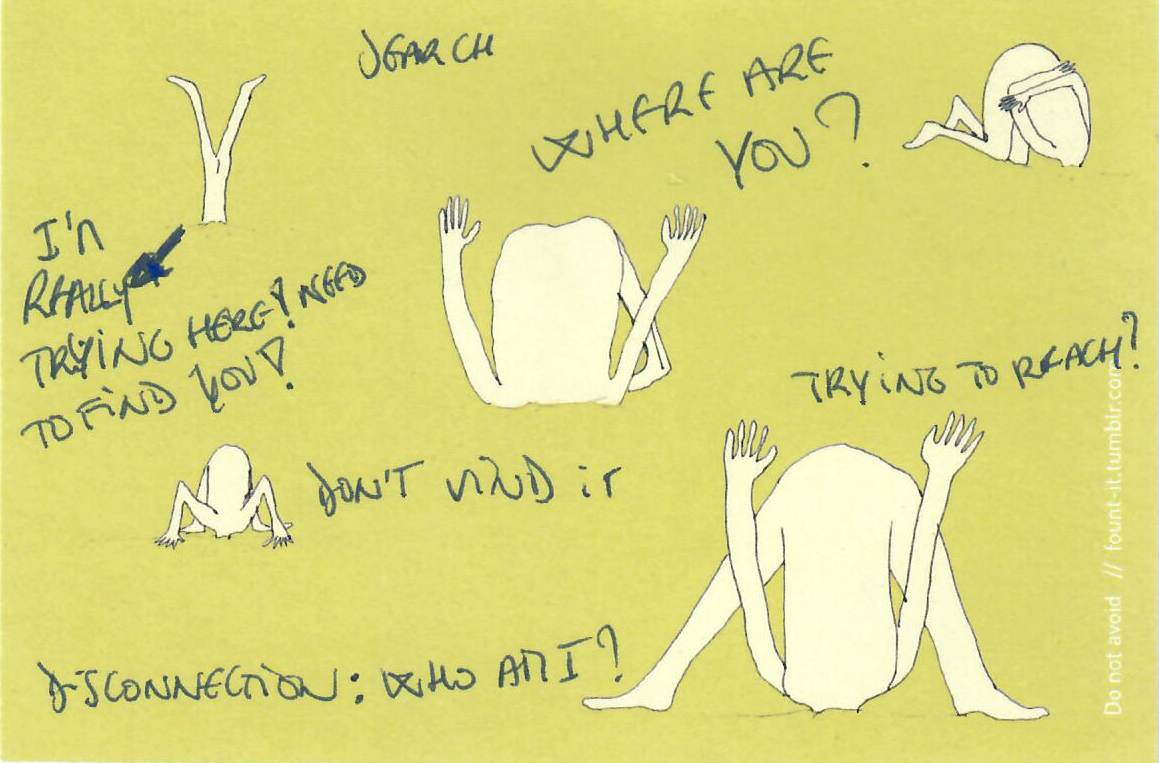 SEARCH
WHERE ARE
YOU?
I'M
REALLY
TRYING HERE! NEED
TO FIND YOU!
TRYING TO REACH?
DON'T MIND IT
DISCONNECTION: WHO AM I?
Do not avoid // fount-it.tumblr.com